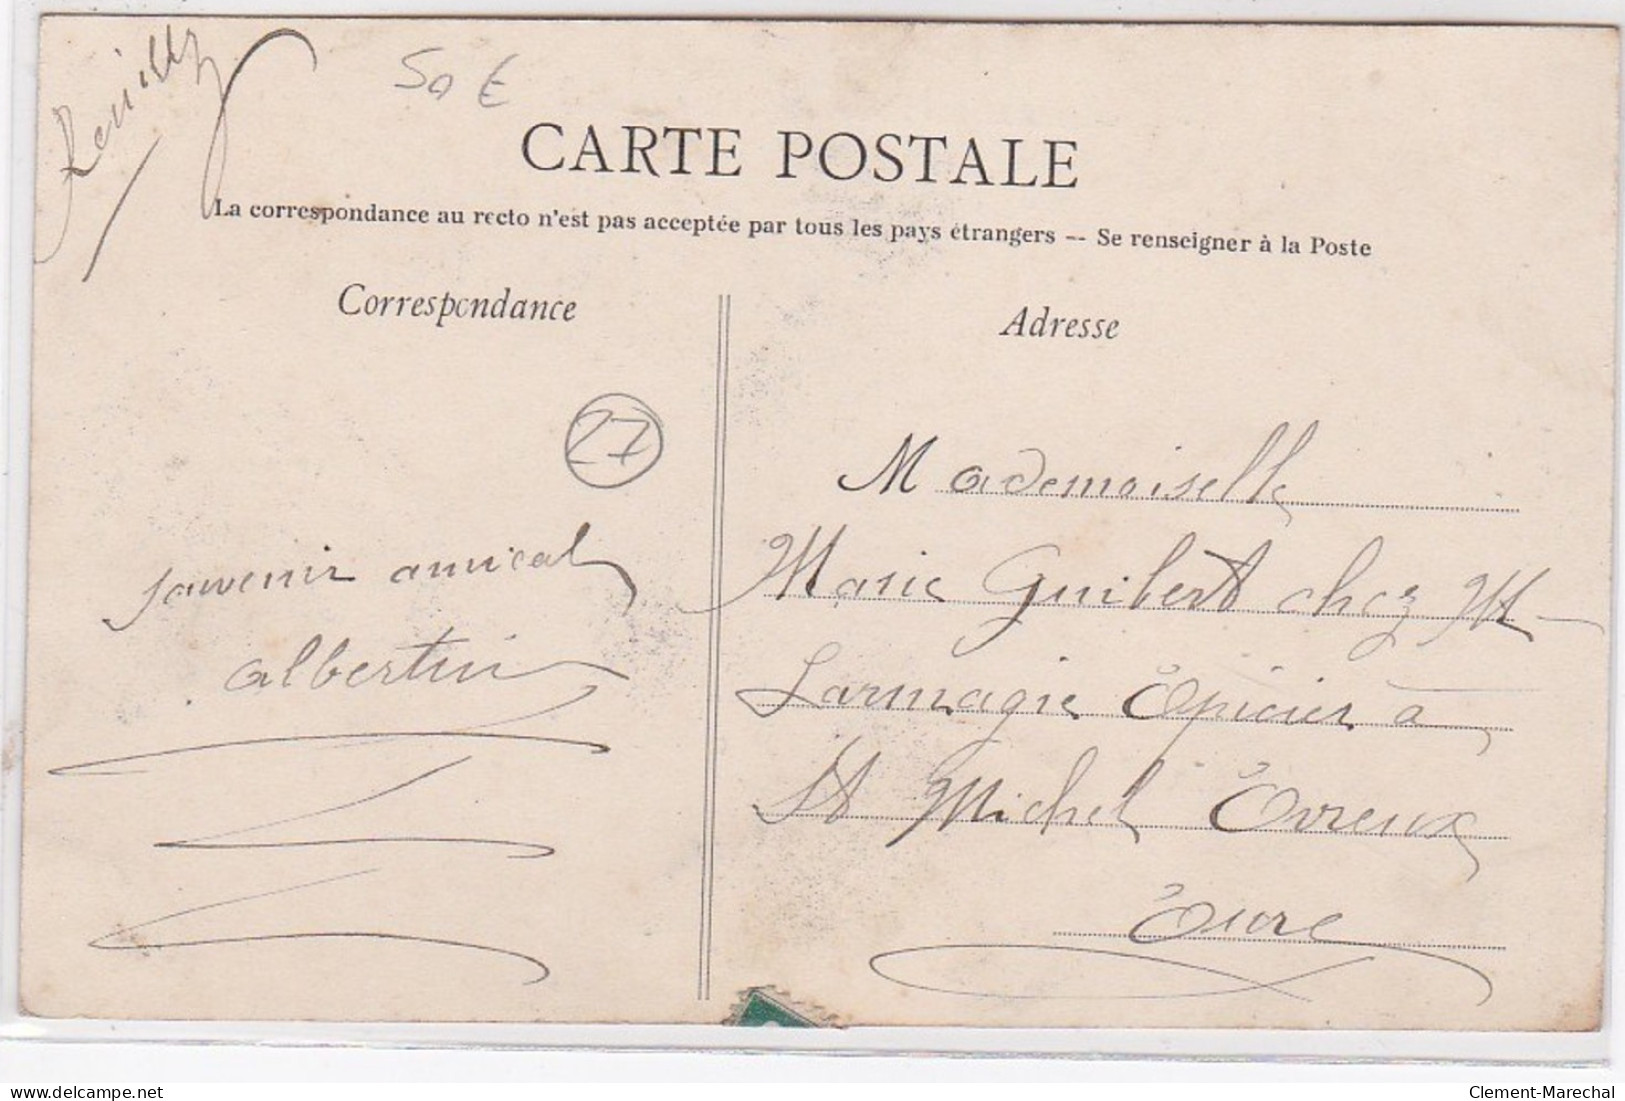 Reuilly
50 €
CARTE POSTALE
La correspondance au recto n'est pas acceptée par tous les pays étrangers -- Se renseigner à la Poste
Correspondance
Adresse
27
souvenir amical
albertine
Mademoiselle
Marie Guibert chez M
Larmagie Epicier a
St Michel Evreux
Eure
Clement-Marechal